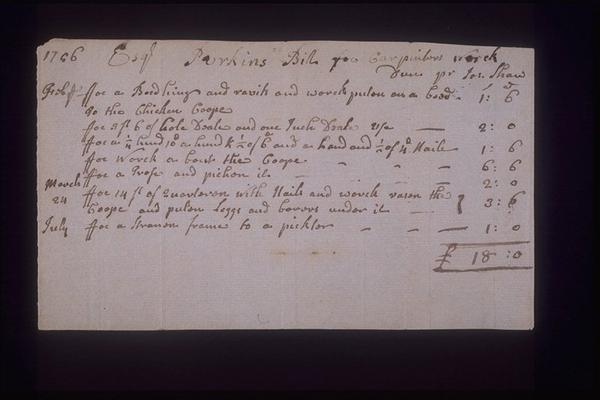 1766 Esqr Perkins Bill for Carpinters Worck
Dun pr Jos. Shaw
s d
Febry ffor a Bedhing and ravits and worck puton on a bord 1: 6
to the Chicken Coope
ffor 3 ft 6 of hole Deale and one Inch Deale Use 2: 0
ffor a 1/4 hund 10d a hund & 1/2 of 6d and a hand and 1/2 of 4d Nails 1: 6
ffor Worck a bout the Coope 6: 6
ffor a Trose and pickon it 2: 0
March 24 ffor 14 ft of Quarteren with Nails and worck rason the
Coope and puton Leggs and borors under it 3: 6
July ffor a Stranon frame to a pickter 1: 0
£ 18: 0